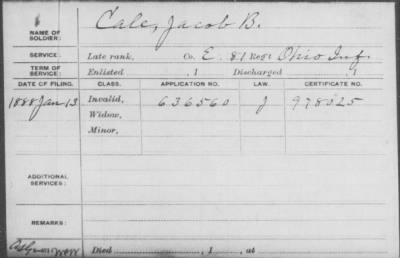 NAME OF SOLDIER: Cale, Jacob B.
SERVICE: Late rank, Co. E. 81 Reg't Ohio Inf.
TERM OF SERVICE: Enlisted , 1 Discharged , 1
DATE OF FILING. CLASS. APPLICATION NO. LAW. CERTIFICATE NO.
1888 Jan 13 Invalid, 636560 J 978025
Widow,
Minor,
ADDITIONAL SERVICES:
REMARKS:
Died , 1 , at